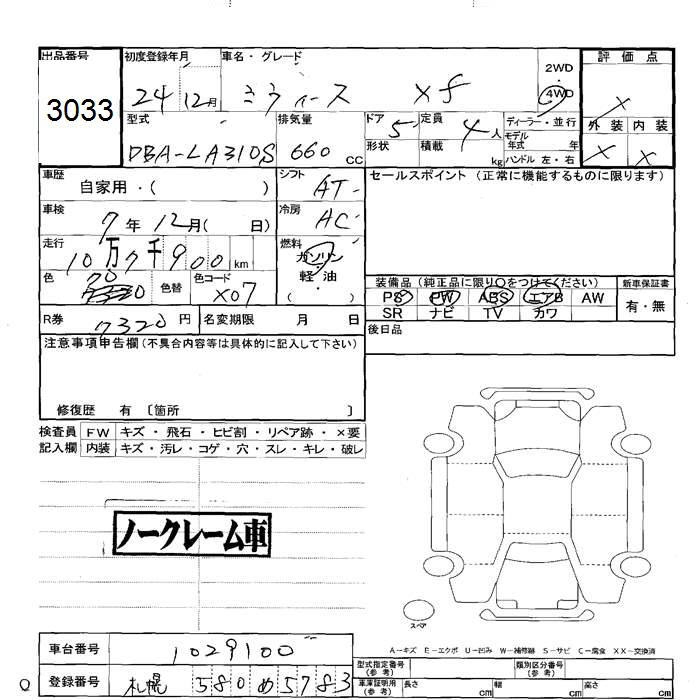 出品番号 初度登録年月 車名・グレード 2WD ・ 4WD 評価点
3033 24 12月 ミライース Xf X
型式 排気量 ドア 定員 ディーラー・並行 外装 内装
DBA-LA310S 660 cc 5 4人 モデル年式 年 X X
形状 積載 kg ハンドル 左・右
車歴 自家用・( ) シフト AT セールスポイント(正常に機能するものに限ります)
車検 7年 12月( 日) 冷房 AC
走行 10万7千900km 燃料 ガソリン・軽油 ( )
色 色替 色コード X07 装備品(純正品に限り○をつけてください) 新車保証書
PS PW ABS エアB AW 有・無
SR ナビ TV カワ
R券 7320円 名変期限 月 日 後日品
注意事項申告欄(不具合内容等は具体的に記入して下さい)
修復歴 有 〔箇所 〕
検査員 FW キズ・飛石・ヒビ割・リペア跡・×要
記入欄 内装 キズ・汚レ・コゲ・穴・スレ・キレ・破レ
ノークレーム車
スペア
A-キズ E-エクボ U-凹み W-補修跡 S-サビ C-腐食 XX-交換済
車台番号 1029100 型式指定番号(参考) 類別区分番号(参考)
登録番号 札幌 580 め 5783 車庫証明用(参考) 長さ cm 幅 cm 高さ cm